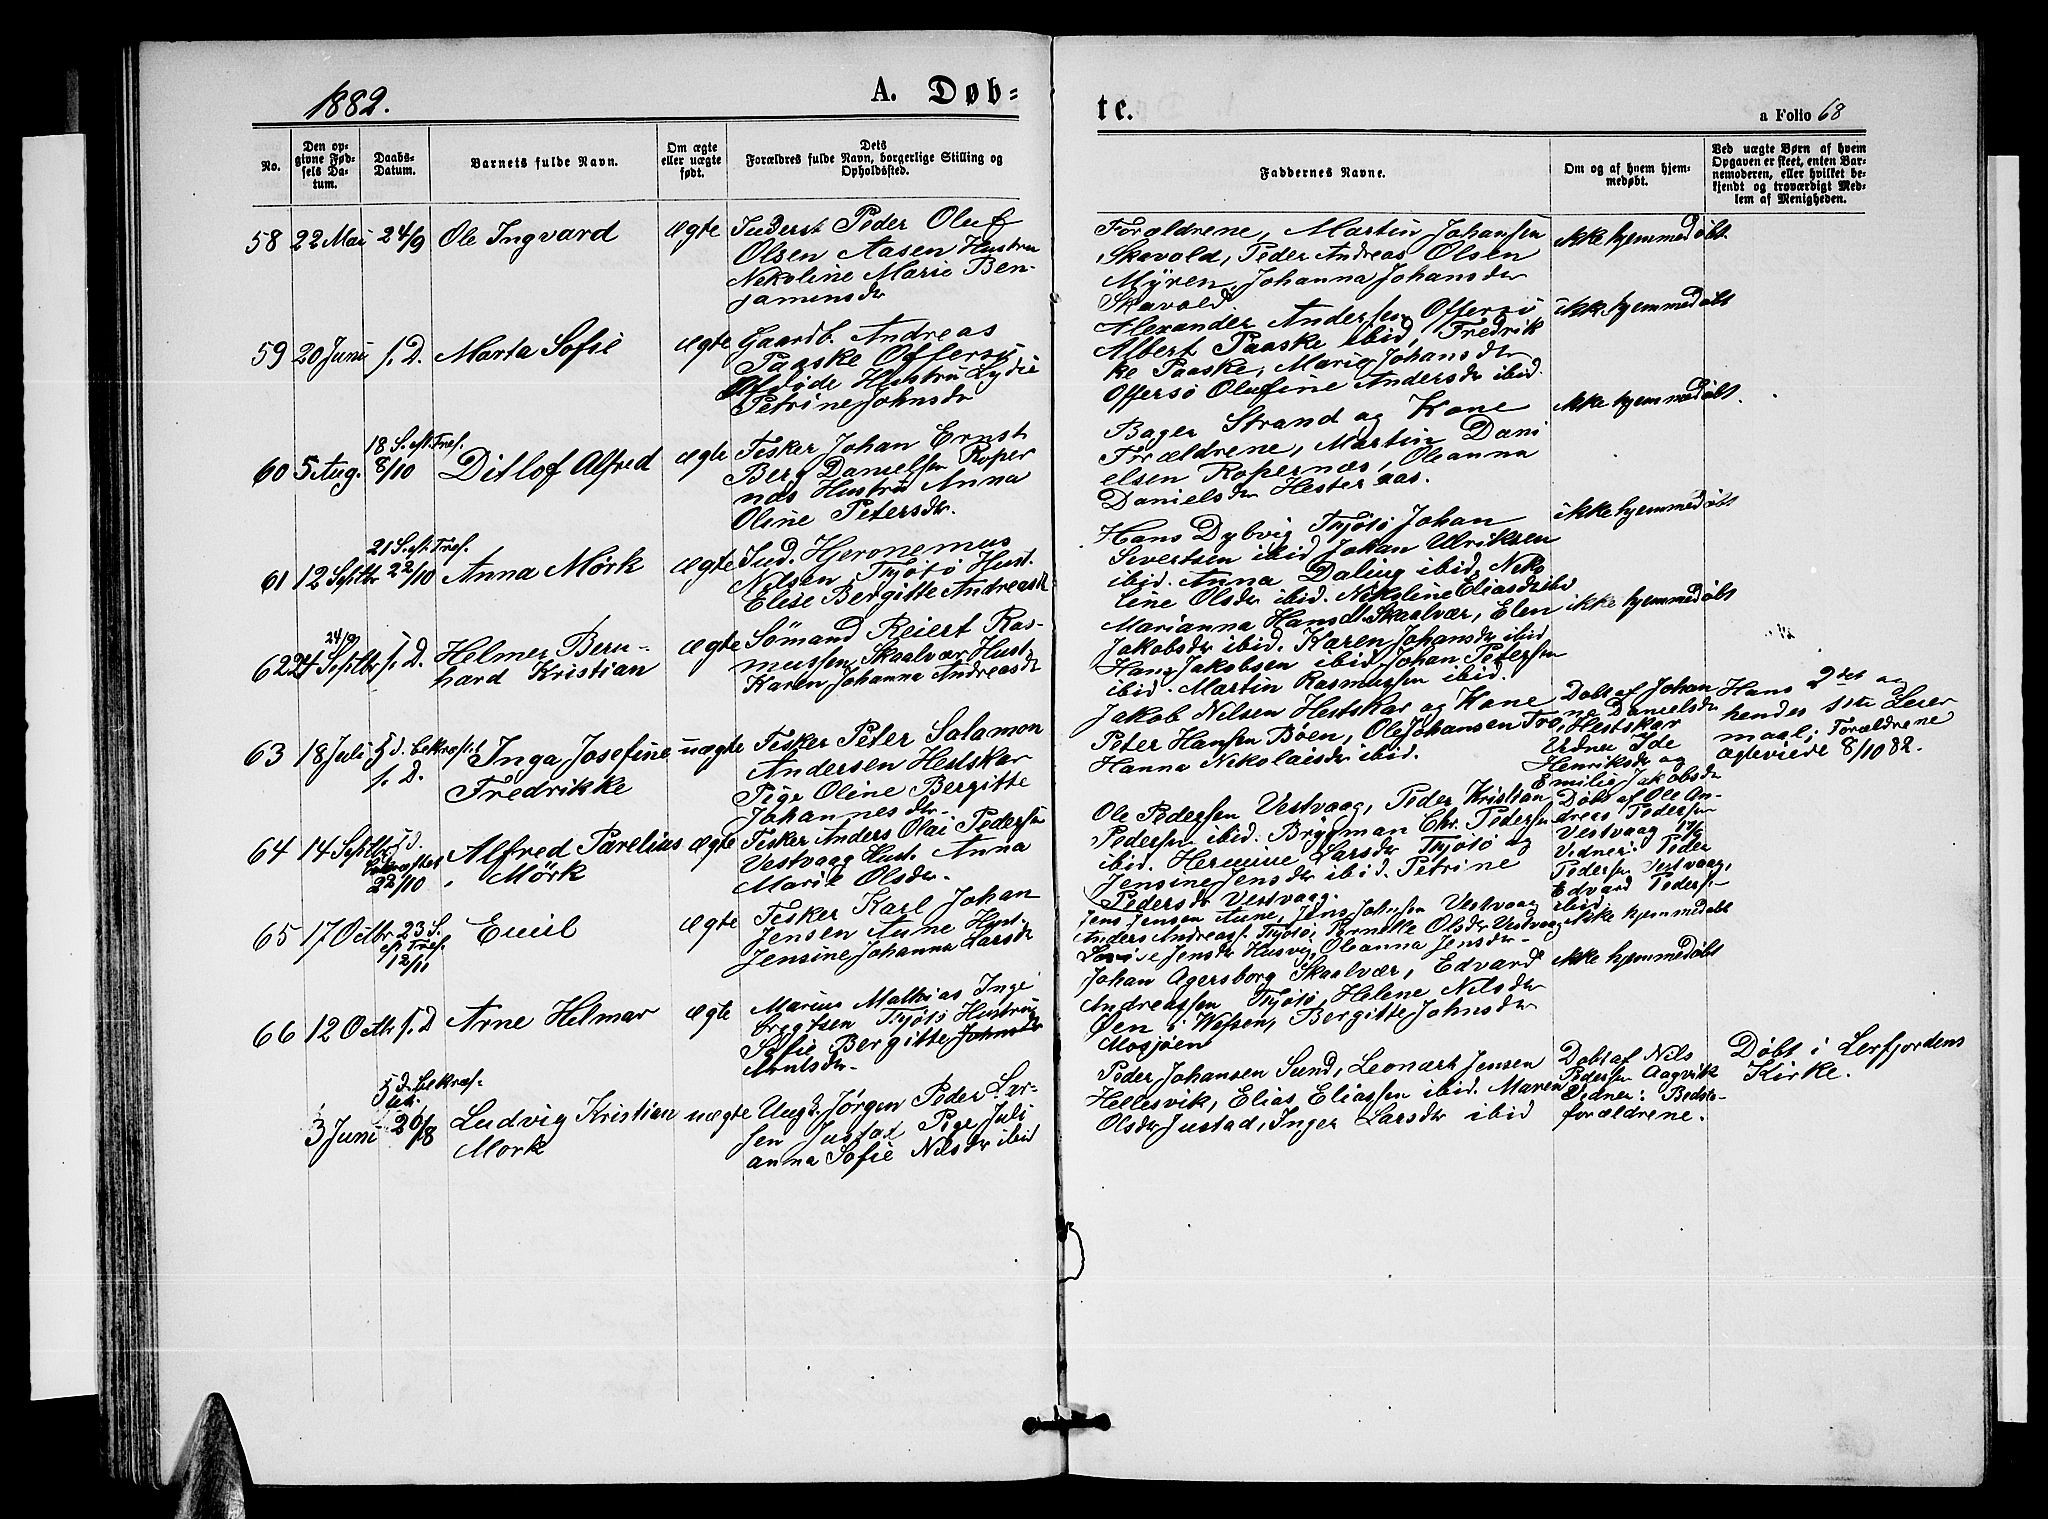 1882.
A. Døb-
te.
a Folio 68
No.
Den op-
givne Fød-
sels Da-
tum.
Daabs-
Datum.
Barnets fulde Navn.
Om ægte
eller uægte
født.
Dets
Forældres fulde Navn, borgerlige Stilling og
Opholdssted.
Faddernes Navne.
Om og af hvem hjem-
medøbt.
Ved uægte Børn af hvem
Opgaven er skeet, enten Bar-
nemoderen, eller hvilket be-
kjendt og troværdigt Med-
lem af Menigheden.
58 22 Mai 24/9 Ole Ingvard ægte Inderst Peder Oluf
Olsen Aasen Hustru
Nikoline Marie Ben-
jaminsdr
Forældrene, Martin Johansen
Skavold, Peder Andreas Olsen
Myren, Johanna Johansdr
Skavold
ikke hjemmedøbt.
59 20 Juni s. D. Marta Sofie ægte Gaardb. Andreas
Paaske Offersø
Hustru Lydie
Petrine Johnsdr
Alexander Andersen Offersø
Albert Paaske ibid, Fredrik
ke Paaske, Marie Johansdr
Offersø Olufine Andersdr ibid.
ikke hjemmedøbt
60 5 Aug. 18 S. eft. Tref.
8/10 Ditlof Alfred ægte Fisker Johan Ernst
Berg Danielsen Roper
næs Hustru Anna
Oline Petersdr.
Bager Strand og Kone
Forældrene, Martin Dani
elsen Ropernæs, Oleanna
Danielsdr Hesteraas.
ikke hjemmedøbt.
61 12 Septbr 21 S. eft. Tref.
22/10 Anna Mörk ægte Ind. Hjeronemus
Nilsen Tjøtø Hust.
Elise Bergitte Andreasdr
Hans Dybvig Tjøtø Johan
Sivertsen ibid Johan Ulriksen
ibid. Anna Daling ibid, Niko
line Olsdr ibid. Nikoline Eliasdr ibid
ikke hjemmedøbt
62 24 Septbr 24/9 s. D. Helmer Bern-
hard Kristian ægte Sømand Reiert Ras-
mussen Skaalvær Hust
Karen Johanna Andreasdr
Marianna Hansd. Skaalvær, Elen
Jakobsdr ibid. Karen Johansdr ibid
Hans Jakobsen ibid Johan Petersen
ibid. Martin Rasmussen ibid.
ikke hjemmedøbt
63 18 Juli d. bekræft.
s. D. Inga Josefine
Fredrikke uægte Fisker Peter Salamon
Andersen Hestskar
Pige Oline Bergitte
Johannesdr.
Jakob Nilsen Hestskar og Kone
Peter Hansen Bøen, Ole Johansen Tro,
Hanna Nikolaisdr ibid.
Døbt af Johan
ne Danielsdr
Hestskar
Vidner Ide
Henriksdr og
Emilie Jakobsdr
Hans 2det og
hendes 1ste Leier
maal; Forældrene
ægteviede 8/10 82.
64 14 Septbr d.
bekræftet
22/10 Alfred Parelius
Mörk ægte Fisker Anders Olai Pedersen
Vestvaag Hust. Anna
Marie Olsdr.
Ole Pedersen Vestvaag, Peder Kristian
Pedersen ibid. Brygman Chr. Pedersen
ibid. Hermine Larsdr Tjøtø og
Jensine Jensdr ibid. Petrine
Pedersdr Vestvaag.
Døbt af Ole An-
dreas Pedersen
Vestvaag 17/9
Vidner: Peder
Pedersen Vestvaag,
Edvard Peders.
ibid.
65 17 Octbr 23 S.
eft. Tref.
12/11 Emil ægte Fisker Karl Johan
Jensen Aune Hust.
Jensine Johanna Larsdr
Jens Jensen Aune, Jens Johnsen Vestvaag
Anders Andreass. Tjøtø, Pernille Olsdr Vestvaag
Jensdr Husvig, Oleanna Jensdr
ikke hjemmedøbt
66 12 Octb. s. D Arne Helmar ægte Marius Mathias Inge
brigtsen Tjøtø Hustru
Sofie Bergitte Johnsdr
Antsdr.
Johan Agersborg Skaalvær, Edvard
Andreassen Tjøtø, Helene Nilsdr
Øen i Wefsen, Bergitte Johnsdr
Mosjøen
ikke hjemmedøbt
3 Juni d. bekræf-
tet
20/8 Ludvig Kristian
Mork uægte Ungk. Jørgen Peder Lar-
sen Justad Pige Juli
anna Sofie Nilsdr ibid
Peder Johansen Sund, Leonart Jensen
Hellesvik, Elias Eliassen ibid. Maren
Olsdr Justad, Inger Larsdr ibid
Døbt af Nils
Pedersen Aagvik
Vidner: Bedste-
forældrene.
Døbt i Lerfjordens
Kirke.